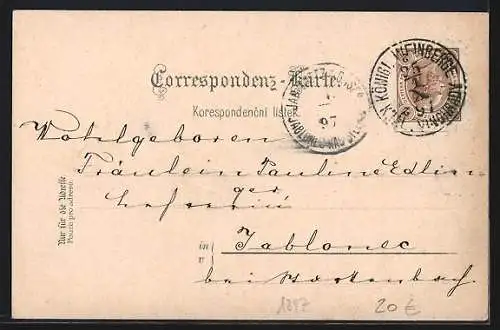 Correspondenz-Karte.
Korespondenční lístek.
KÖNIGL. WEINBERGE
97
Wohlgeboren
Fräulein Pauline Edlin-
ger
Nur für die Adresse
Pouze pro adresu
in
v
Jablonec
bei
1897
20 €